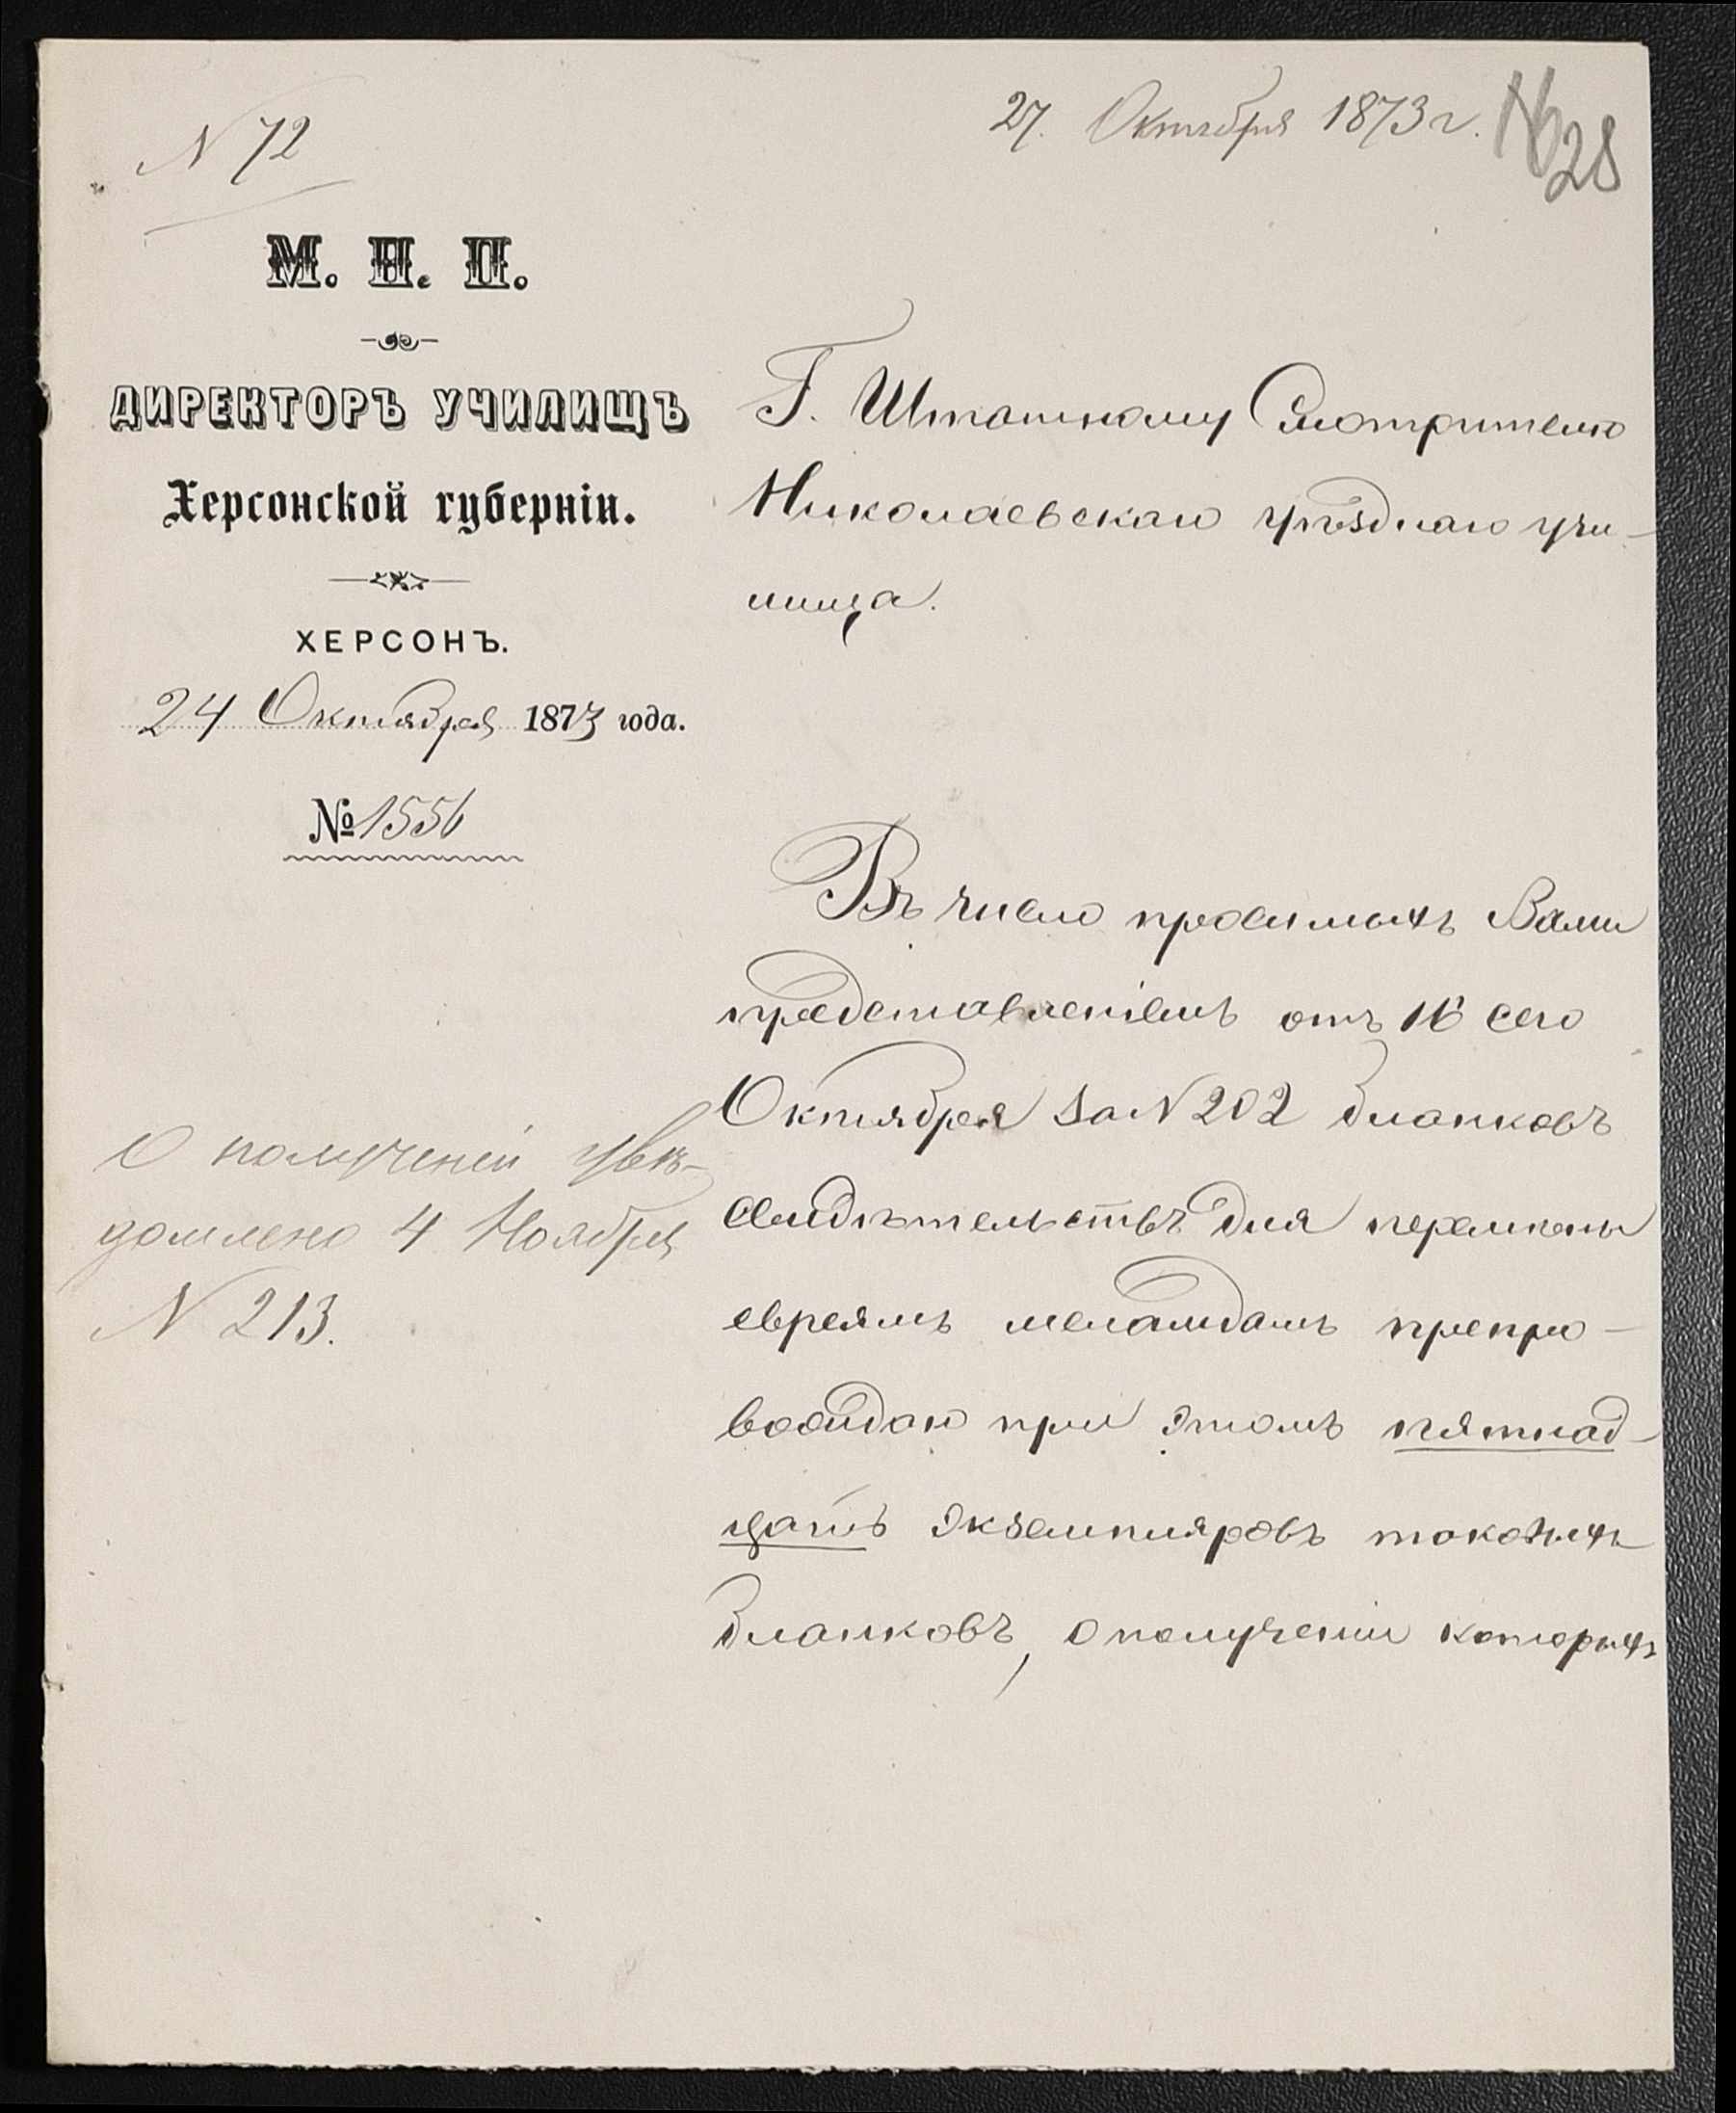 N 72
27. Октября 1873 г.
28
М. Н. П.
ДИРЕКТОРЪ УЧИЛИЩЪ
Херсонской губерніи.
ХЕРСОНЪ.
24 Октября 1873 года.
№ 1556
Г. Штатному Смотрителю
Николаевскаго уѣзднаго учи-
лища.
Въ число просимыхъ Вами
представленіемъ отъ 16 сего
Октября за N 202 бланковъ
свидѣтельствъ для перемѣны
евреямъ меламдамъ препро-
вождаю при этомъ пятнад-
цать экземпляровъ таковыхъ
бланковъ, о полученіи которыхъ
О полученіи увѣ-
домлено 4 Ноября
N 213.